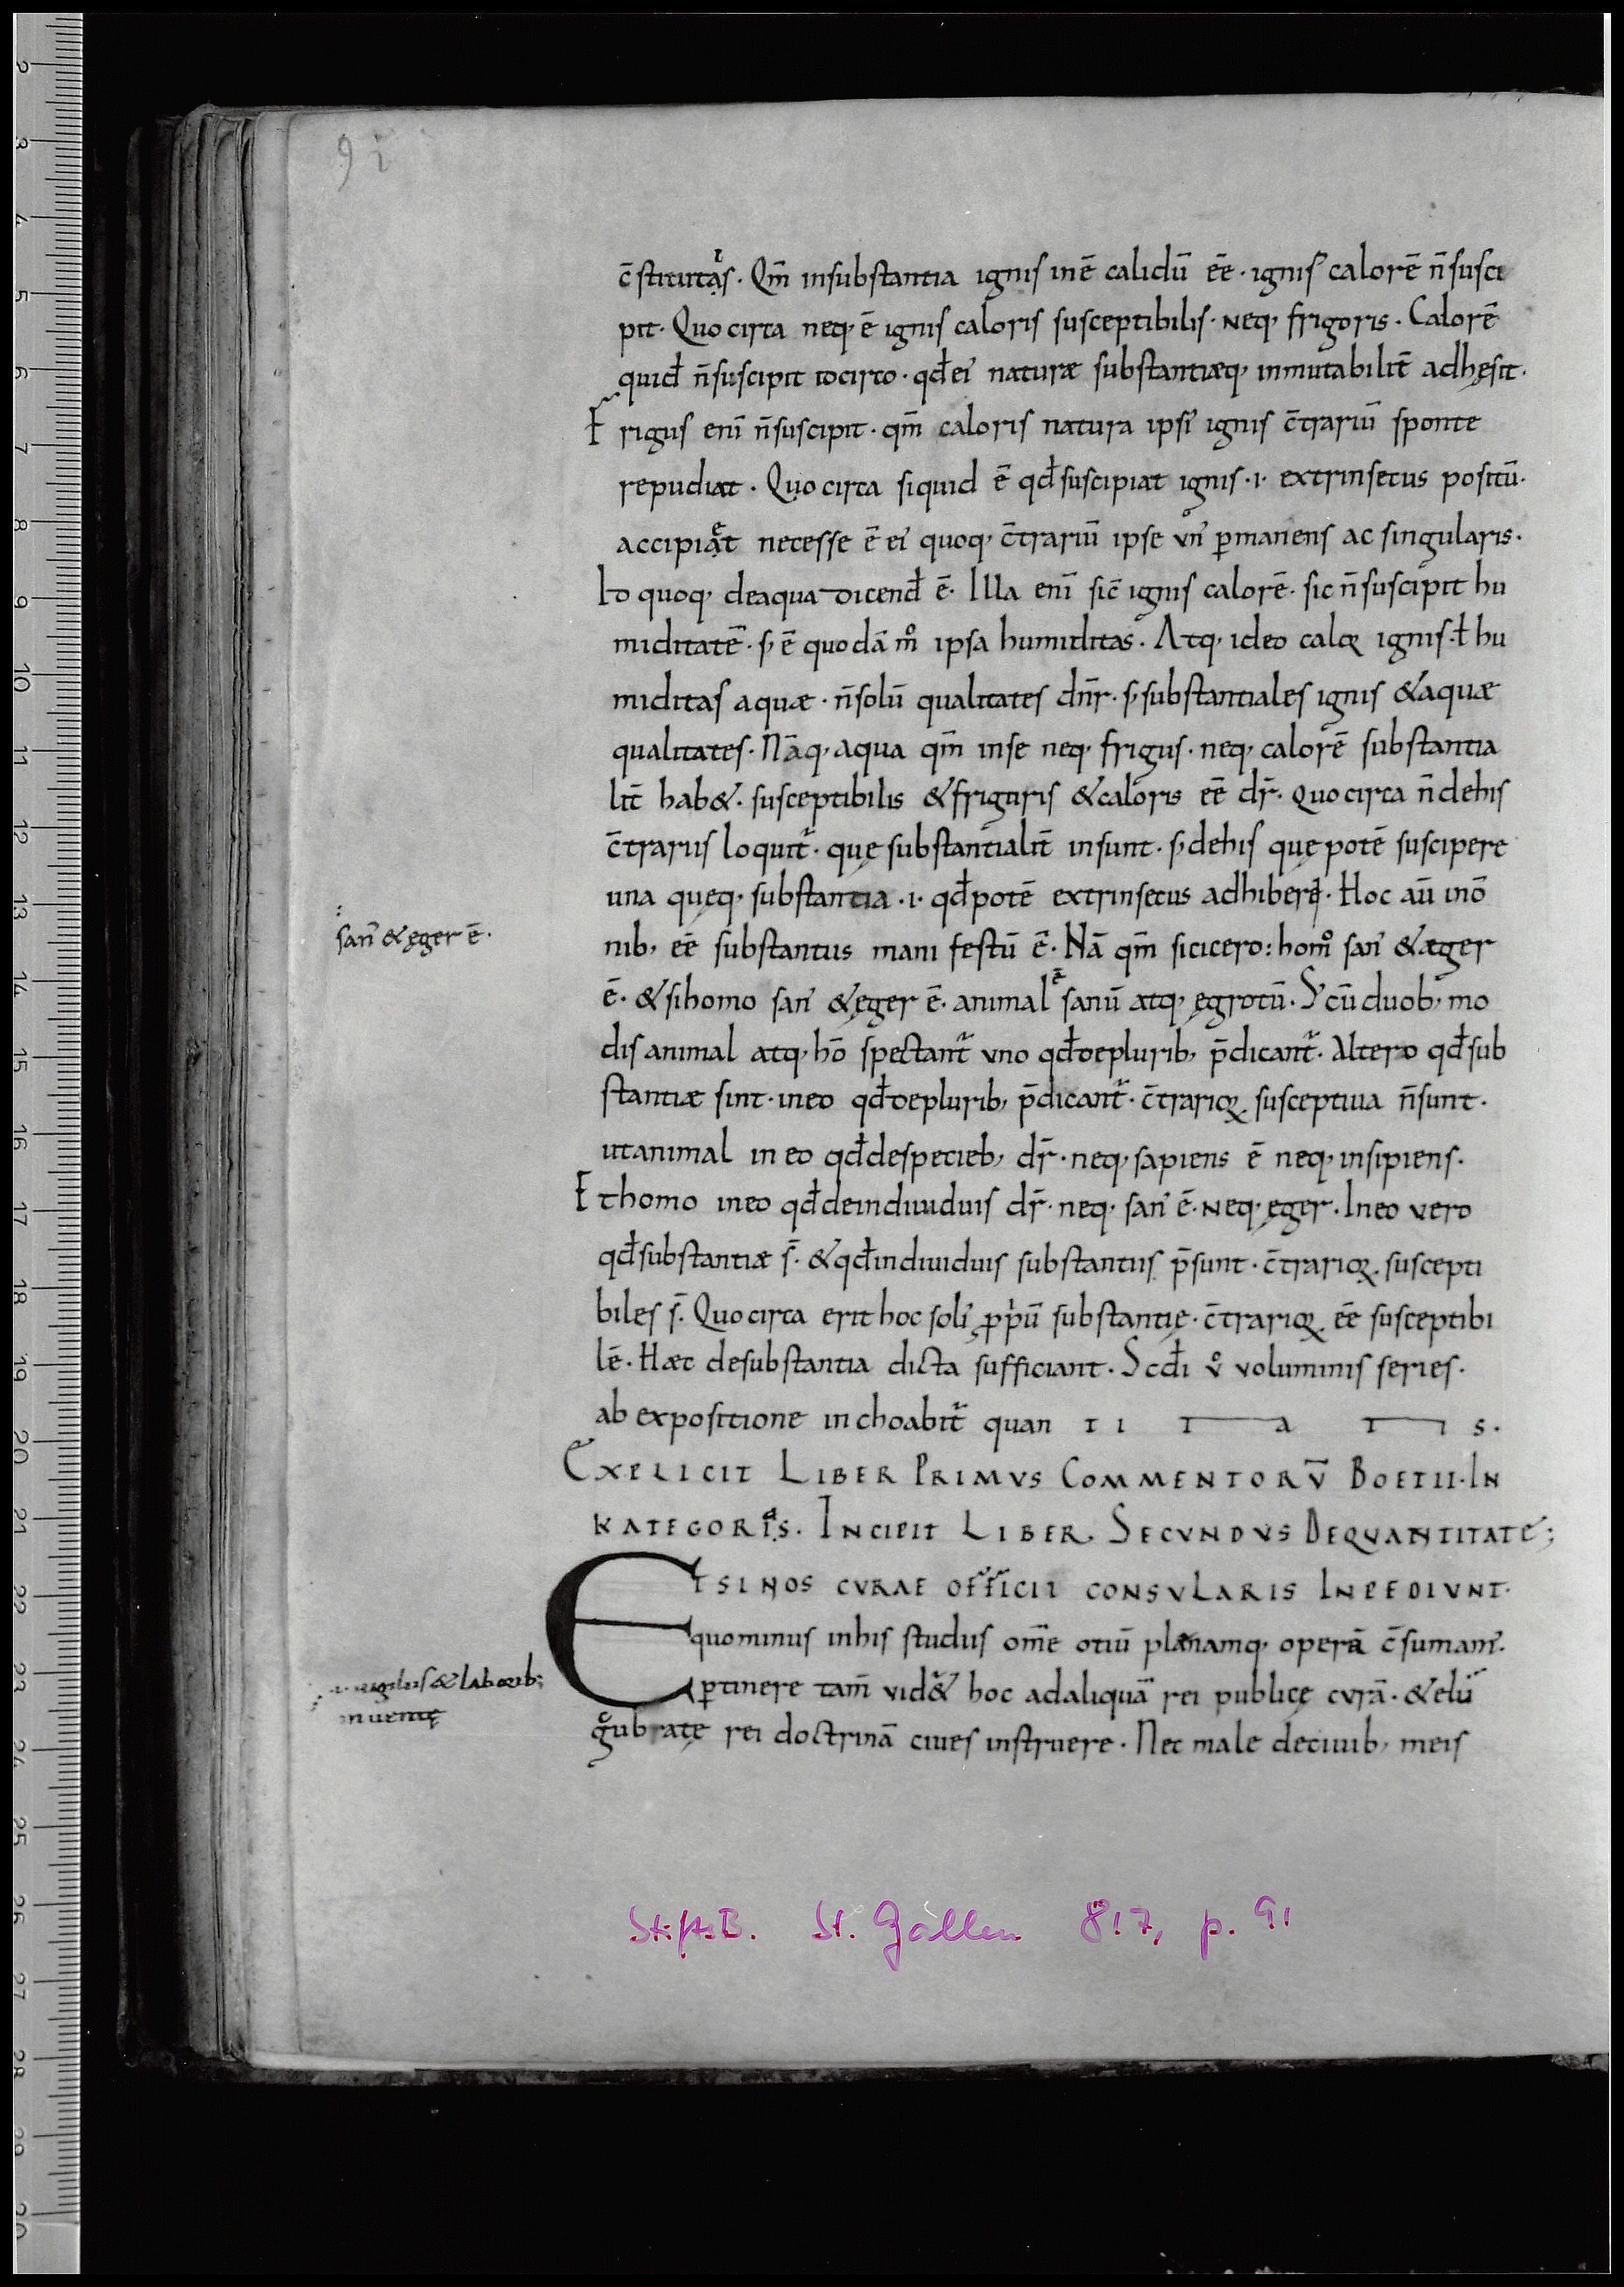 91
c̄stituta͛s · Qm̄ insubstantia ignis inē calidū ēē · ignis calorē n̄susci
pit · Quocirca neq; ē ignis caloris susceptibilis · neq; frigoris · Calorē
quid̄ n̄suscipit idcirco · qd̄ei naturæ substantiæq; inmutabilit̄ adhęsit ·
Frigus enī n̄suscipit · qm̄ caloris natura ipsi ignis c̄trariū sponte
repudiat · Quocirca siquid ē qd̄suscipiat ignis · i · extrinsecus positū ·
accipiaͤt necesse ē ei quoq; c̄trariū ipse vn̊ p̄manens ac singularis ·
Id quoq; deaqua dicend̄ ē · Illa enī sic̄ ignis calorē · sic n̄suscipit hu
miditatē · s; ē quodā mͦ ipsa humiditas · Atq; ideo caloꝝ ignis · ł hu
miditas aquæ · n̄solū qualitates dn̄r · s; substantiales ignis &aquæ
qualitates · Nāq; aqua qm̄ inse neq; frigus · neq; calorē substantia
lit̄ hab& · susceptibilis &frigoris &caloris ēē dr̄ · Quocirca n̄dehis
c̄trariis loquit᷑ · quę substantialit̄ insunt · s; dehis quę potē suscipere
una quęq; substantia · i · qd̄potē extrinsecus adhiberi · Hoc aū inō
nib; ēē substantiis manifestū ē · Nā qm̄ sicicero : homͦ san᾽ &æger
san᾽ &ęger ē ·
ē · &sihomo san᾽ &ęger ē · animal ē sanū atq; ęgrotū · S; cū duob; mo
dis animal atq; hō spectant᷑ vno qd̄deplurib; p̄dicant᷑ · Altero qd̄sub
stantiæ sint · ineo qd̄deplurib; p̄dicant᷑ · c̄trarioꝝ susceptiua n̄sunt ·
utanimal in eo qd̄despecieb; dr̄ · neq; sapiens ē neq; insipiens ·
Et homo ineo qd̄deindiuiduis dr̄ · neq; san᾽ ē · neq; ęger · Ineo vero
qd̄substantiæ s̄ · &qd̄indiuiduis substantiis p̄sunt · c̄trarioꝝ suscepti
biles s̄ · Quocirca erit hoc soli᾽ ꝓp̍ū substantię · c̄trarioꝝ ēē susceptibi
lē · Hæc desubstantia dicta sufficiant · Scd̄i vͦ voluminis series ·
ab expositione inchoabit᷑ quan t i t a t i s ·
EXPLICIT LIBER PRIMVS COMMENTORV̄ BOETII · IN
KATEGORIAS · INCIPIT LIBER SECVNDVS DEQVANTITATE ;
ETSI NOS CVRAE OFFICII CONSVLARIS INPEDIVNT ·
quominus inhis studiis om̄e otiū planamq; operā c̄sumam᾽ ·
p̄tinere tam̄ vid&᷑ hoc adaliquā rei publicę curā · &elu
uigiliis & laborib;
inuentę
gubratę rei doctrinā ciues instruere · Nec male deciuib; meis
StiftsB. St. Gallen 817, p. 91